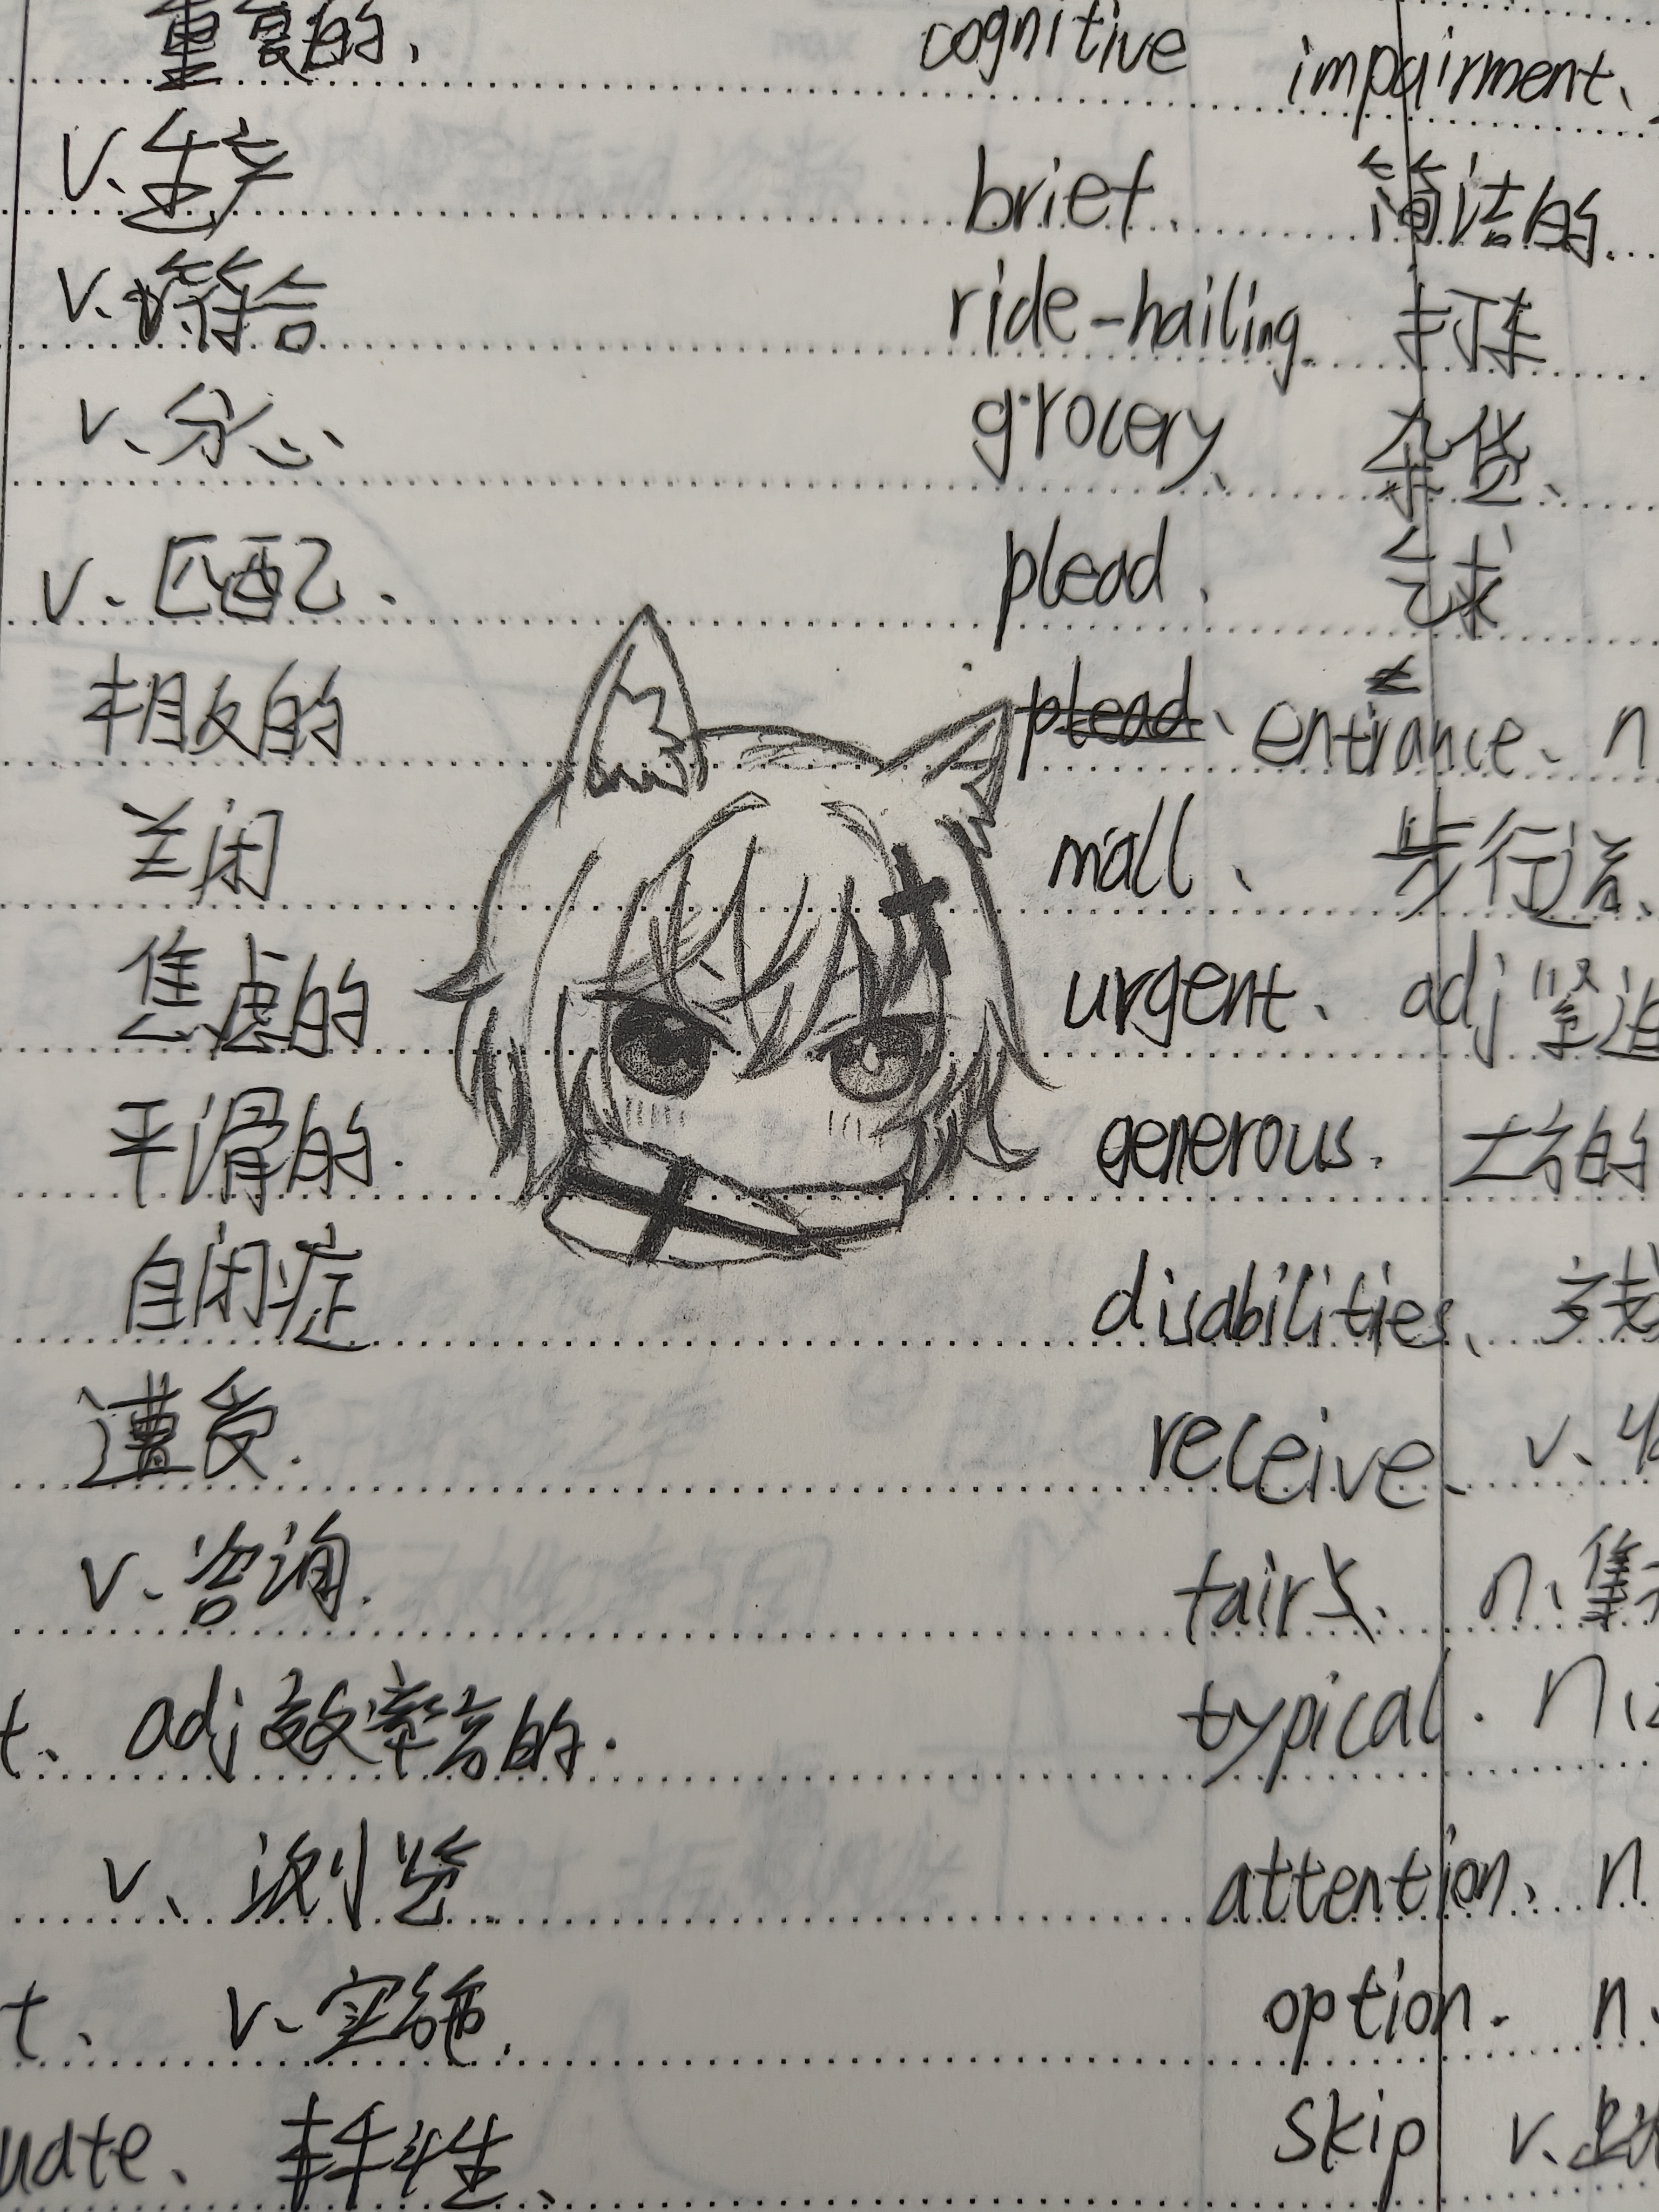 重复的、 cognitive impairment、
v、生产 brief、 简洁的.
v、符合 ride-hailing. 打车
v、分心、 grocery、 杂货、
v、匹配、 plead、 乞求
相反的 plead、entrance、n
关闭 mall、 步行道、
焦虑的 urgent、 adj 紧迫
平滑的. generous. 大方的
自闭症 disabilities、 残
遭受. receive、 v、收
v、咨询. fairs、 n、集
t、 adj 效率高的. typical. n
v、浏览 attention、 n
t、 v、实施. option. n.
uate、 skip v、跳